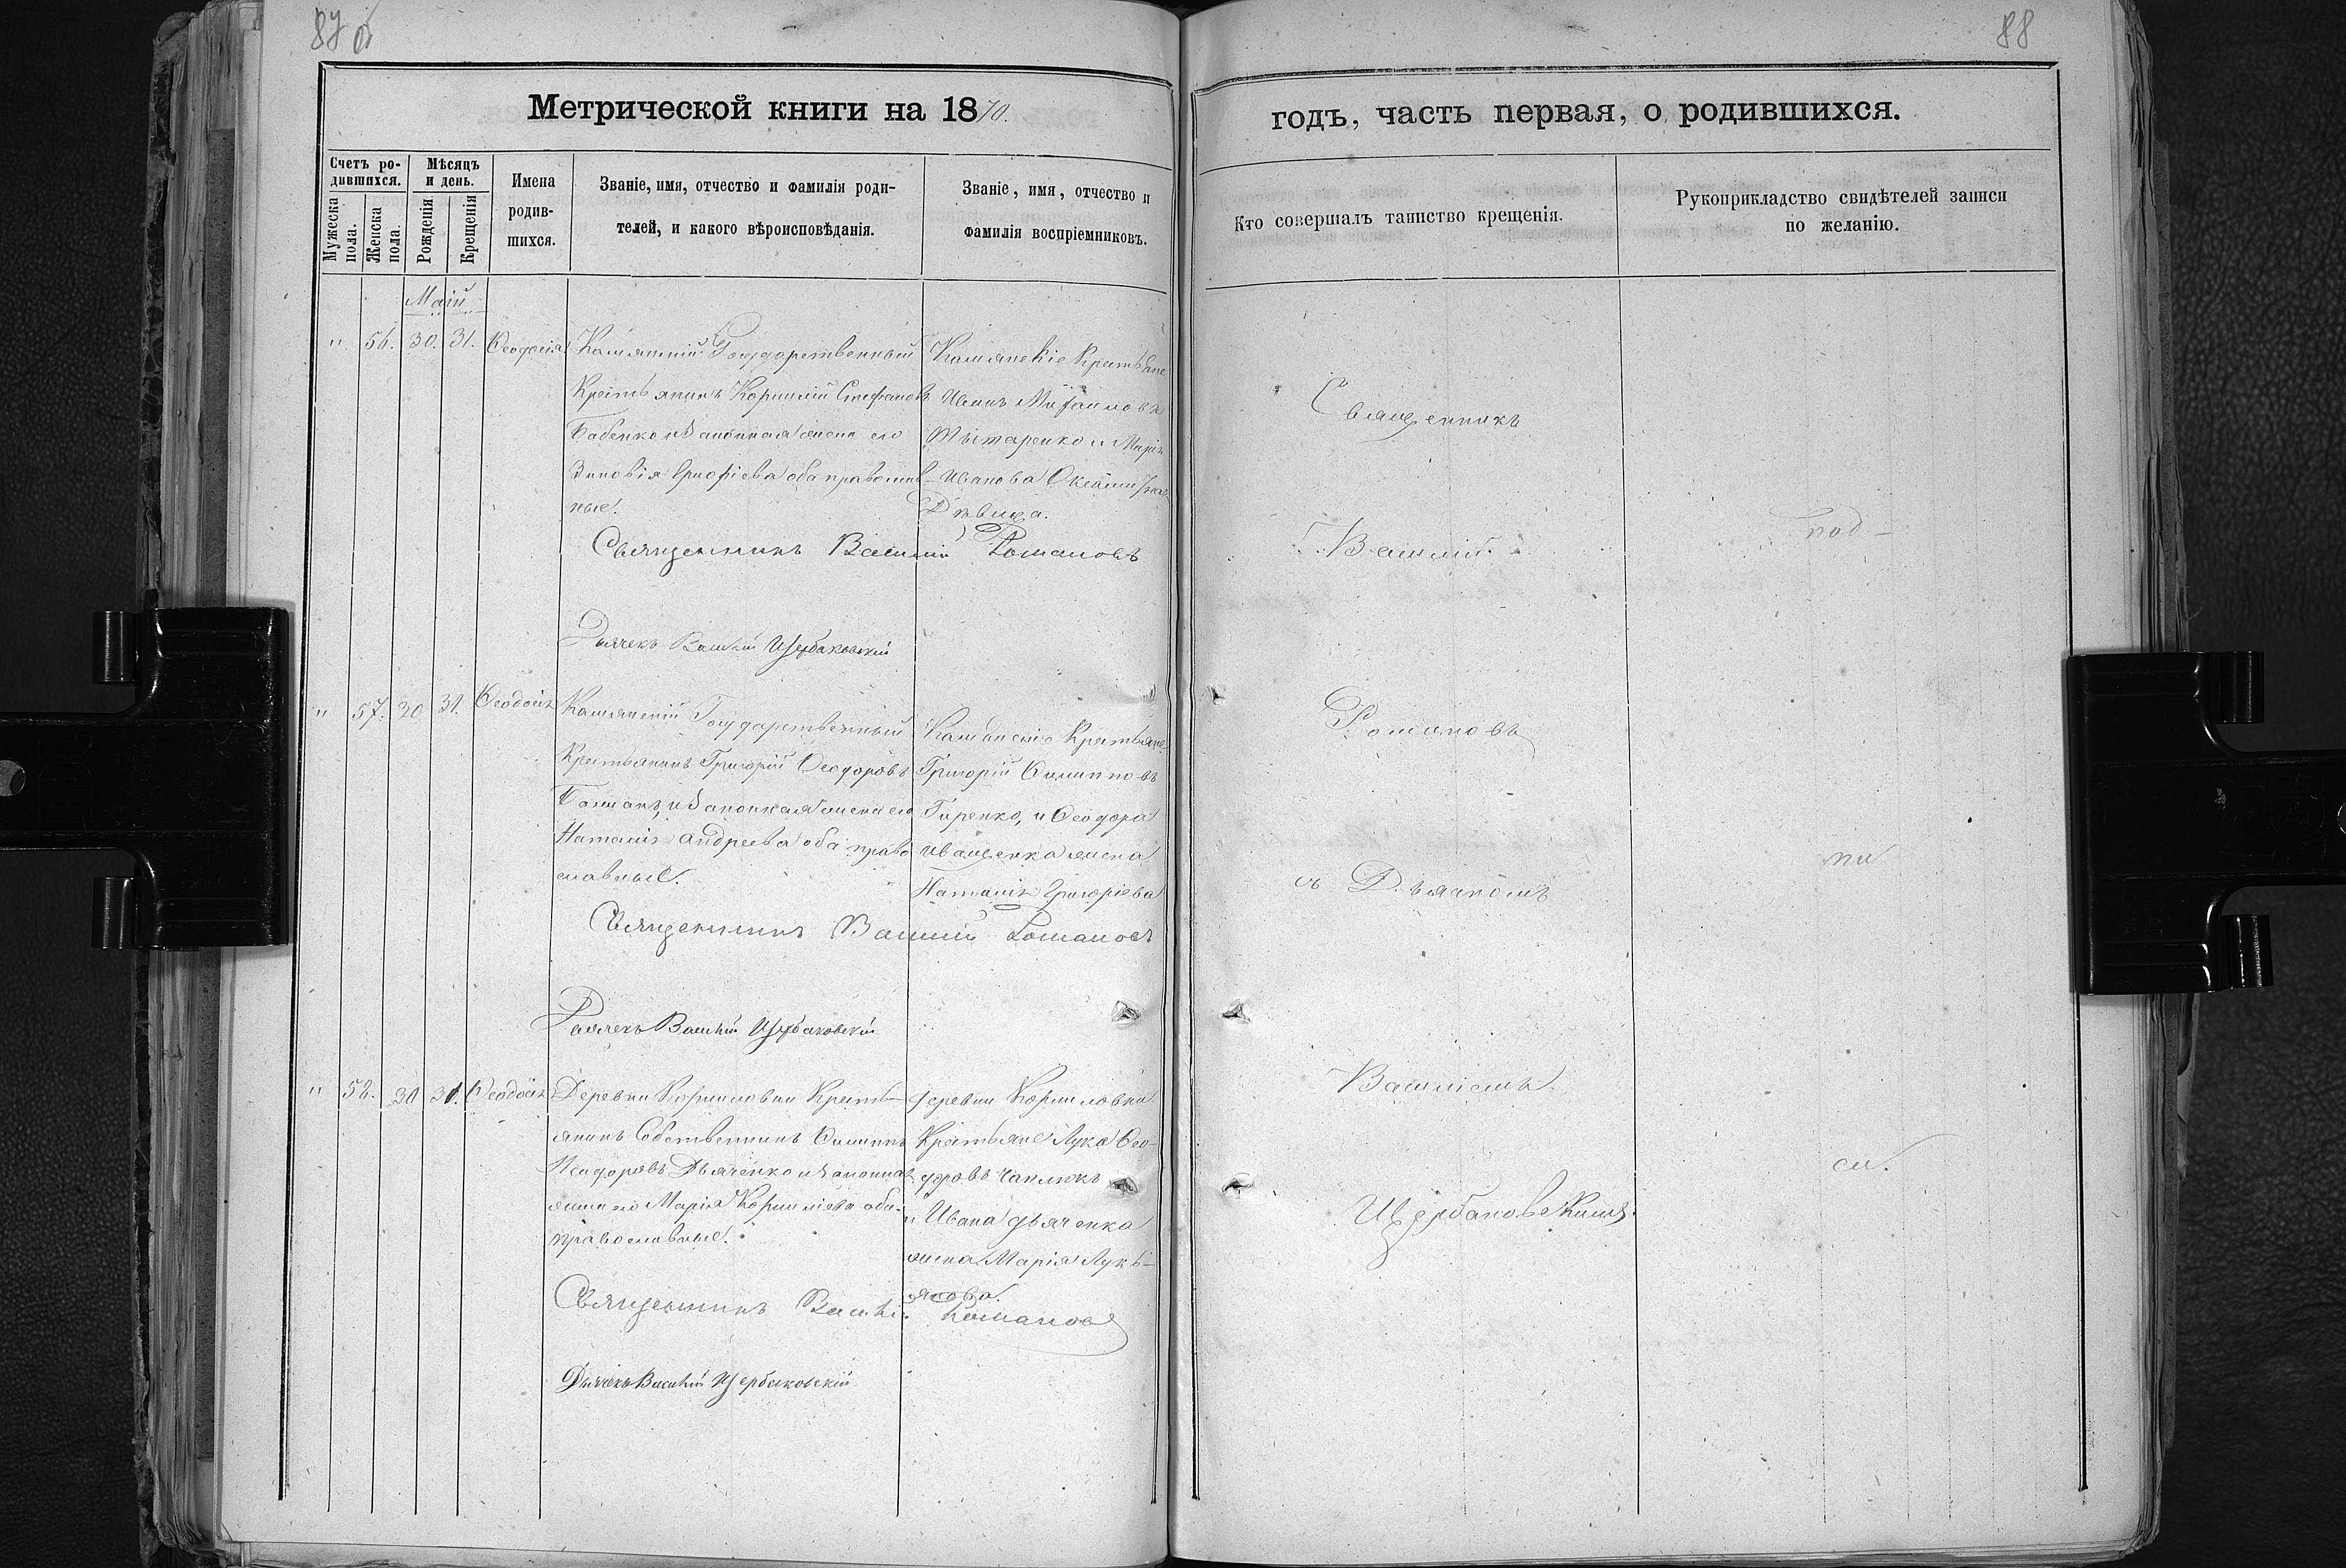 87 об
88
Метрической книги на 1870.
годъ, часть первая, о родившихся.
Счетъ ро-
дившихся.
Мѣсяцъ
и день.
Мужеска
пола.
Женска
пола.
Рожденія
Крещенія
Имена
родив-
шихся.
Званіе, имя, отчество и фамилія роди-
телей, и какого вѣроисповѣданія.
Званіе, имя, отчество и
фамилія воспріемниковъ.
Кто совершалъ таинство крещенія.
Рукоприкладство свидѣтелей записи
по желанію.
Маій
" 56. 30. 31. Ѳеодосія
Государственный
Крестьянинъ Корнилій Стефановъ
Бабенко и законная жена его
Зиновія Ерофіева оба православ-
ные.
Крестьяне
Иванъ Михаиловъ
и Марія
Иванова
Дѣвица.
Священникъ Василій Романовъ
Дьячекъ Василій Щербаковскій
" 57. 30 31. Ѳеодосія
Государственный
Крестьянинъ Григорій Ѳеодоровъ
и законная жена его
Наталія Андреева оба право
славные.
Крестьяне
Григорій Филипповъ
Гиренко, и Ѳеодора
Иващенка жена
Наталія Григоріева
Священникъ Василій Романовъ
Дьячекъ Василій Щербаковскій
" 58. 30 31. Ѳеодосія
Деревни Корниловки Кресть-
янинъ Собственникъ Филиппъ
Дьяченко и законная
жена его Марія Корниліева оба
православные.
Деревни Корниловки
Крестьяне Лука Ѳео-
доровъ Чаплюкъ
и Ивана Дьяченка
жена Марія Лукь-
янова.
Священникъ Василій Романовъ
Дьячекъ Василій Щербаковскій
Священникъ
Василій
Романовъ
съ Дьячкомъ
Василіемъ
Щербаковскимъ.
под-
пи
си.